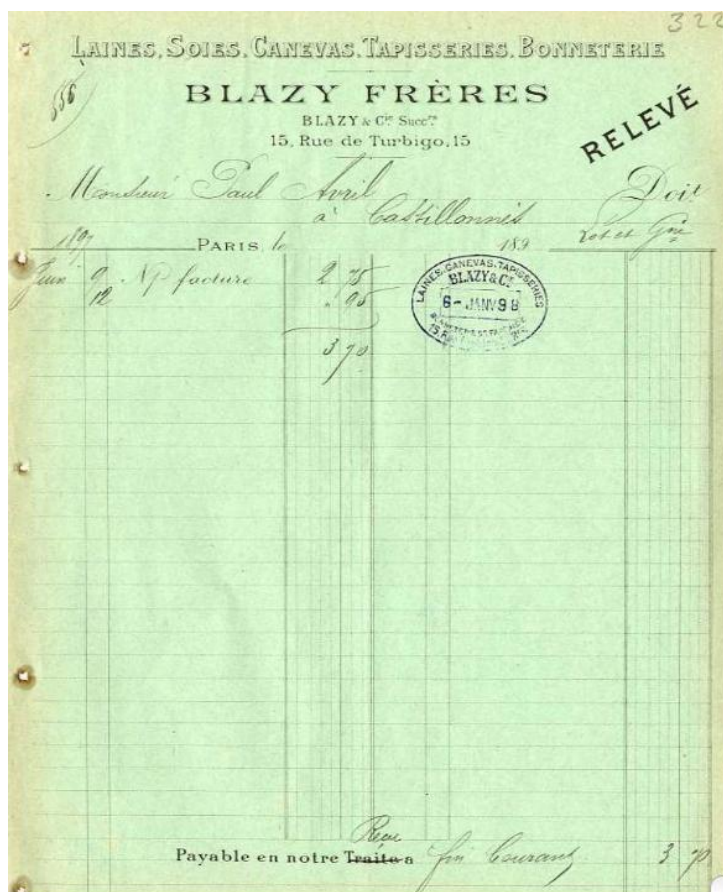 322
7 LAINES. SOIES. CANEVAS. TAPISSERIES. BONNETERIE
556
BLAZY FRÈRES
BLAZY & Cie Succrs
15, Rue de Turbigo, 15
RELEVÉ
Monsieur Paul Avril Doit
à Castillonnès
1897 PARIS, le 189 Lot et Gne
Juin 9 N/ facture 2 75
12 " 95
3 70
LAINES. CANEVAS. TAPISSERIES
BLAZY & Cie
6 - JANV 98
Recu
Payable en notre Traite a fin Courant 3 70